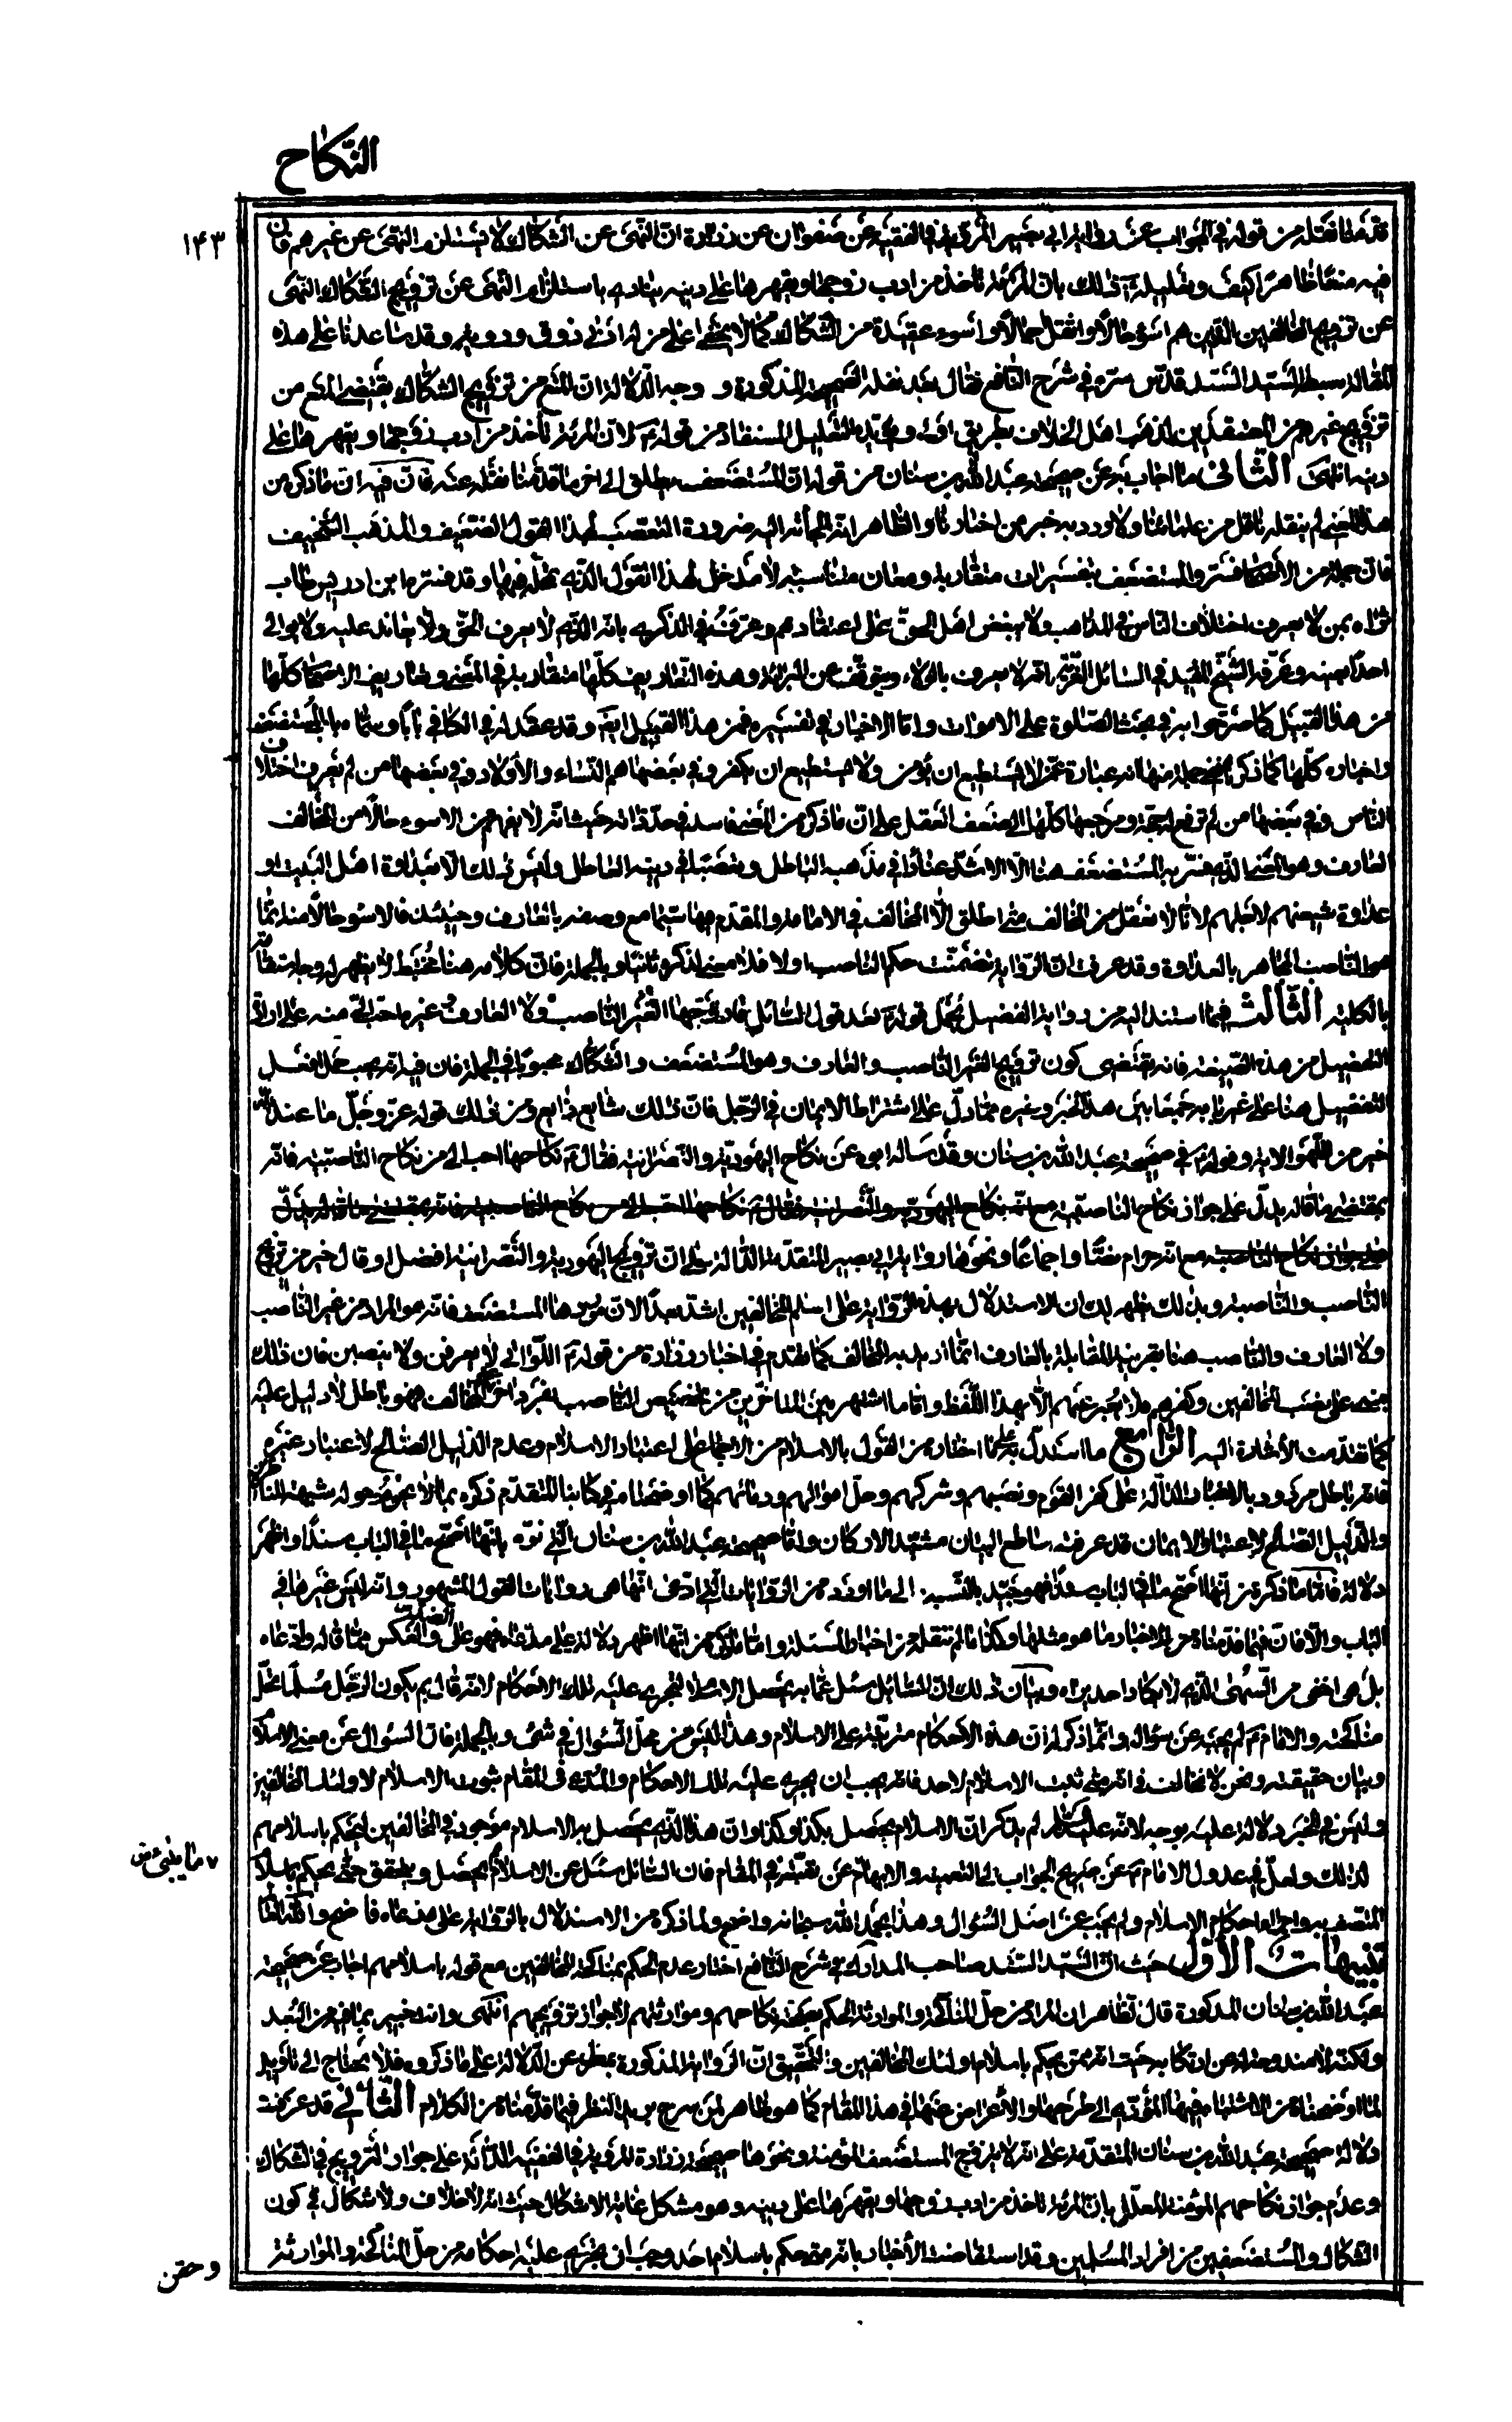 النّكاح
١٤٣
قدّمنا نقله من قوله في الجواب عن رواية ابي بصير المرويّة في الفقيه عن صفوان عن زرارة انّ النّهى عن الشكاك لا يستلزم النّهى عن غيرهم فان
فيه منعًا ظاهرًا كيف وتعليله ذلك بان المرئة تأخذ من ادب زوجها ويقهرها على دينه ينادى باستلزام النّهى عن تزويج الشكاك النّهى
عن تزويج المخالفين الّذين هم اسوء حالًا واشدّ واسوء عقيدة من الشّكاك كما لا يخفى على من له ادنى ذوق ورويّة وقد ساعدنا على هذه
المقالة سبطه السّيّد السّند قدّس سرّه في شرح النّافع فقال بعد نقله الصّحيحة المذكورة و وجه الدّلالة انّ المنع من تزويج الشّكاك يقتضى المنع من
تزويج غيرهم من المعتقدين لمذهب اهل الخلاف بطريق اولى ويؤيّده التعليل المستفاد من قوله لانّ المرئة تأخذ من ادب زوجها ويقهرها على
دينه انتهى الثّانى ما اجاب به عن صحيحة عبد الله بن سنان من قوله انّ المستضعف يطلق الى اخر ما قدّمنا نقله عنه فان فيه ان ما ذكره من
هذا المعنى لم ينقله ناقل من علمائنا ولا ورد به خبر من اخبارنا والظاهر انّه الجأته اليه ضرورة التعصّب لهذا القول الضّعيف والمذهب السّخيف
فان جملة من الاصحاب فسّروا المستضعف بتفسيرات متقاربة ومعان متناسبة لا مدخل لهذا القول الّذى نقله فيها وقد فسّره ابن ادريس طاب
ثراه بمن لا يعرف اختلاف النّاس في المذاهب ولا يبغض اهل الحقّ على اعتقادهم وعرّفه في الذكرى بانه الّذى لا يعرف الحقّ ولا يعاند عليه ولا يوالى
احدًا بعينه وعرّفه الشّيخ المفيد في المسائل الغرّيّة بانّه لا يعرف بالولاء ويتوقّف عن البرائة وهذه التّعاريف كلّها متقاربة في المعنى وتعاريف الاصحاب كلّها
من هذا القبيل كما صرّحوا به في بحث الصّلوة على الاموات وامّا الاخبار في تفسيره فمن هذا القبيل ايضًا وقد عقد له في الكافى بابًا وسمّاه باب المستضعف
واخباره كلّها كما ذكرنا ففي جملة منها انّه عبارة عمّن لا يستطيع ان يؤمن ولا يستطيع ان يكفر وفي بعضها هم النّساء والأولاد وفي بعضها من لم يعرف اختلاف
النّاس وفي بعضها من لم ترفع له حجّة ومرجعها كلّها الى ضعف العقل على انّ ما ذكره من المعنى فاسد في حدّ ذاته حيث انّه لا يفهم من الاسوء حالًا من المخالف
العارف وهو المعنى الّذى فسّر به المستضعف هنا الّا الاشدّ عنادًا في مذهب الباطل وتعصّبًا في دينه العاطل وليس ذلك الّا بعداوة اهل البيت او
عداوة شيعتهم لاجلهم لانّا لا نعقل من المخالف متى اطلق الّا المخالف في الامامة والمقدّم فيها سيّما مع وصفه بالعارف وحينئذ فالاسوء حالًا منه انّما
هو النّاصب المظاهر بالعداوة وقد عرفت انّ الرّواية تضمّنت حكم النّاصب اولا فلا معنى لذكره ثانيًا وبالجملة فانّ كلامه هنا مختبط لا يظهر له وجه استقامة
بالكلّيّة الثّالث فيما استند اليه من رواية الفضيل بحمل قوله بعد قول السّائل فازوّجها الغير النّاصب ولا العارف غيره احبّ الىّ منه على ارادة
التفضيل من هذه الصّيغة فانه يقتضى كون تزويج الغير النّاصب والعارف وهو المستضعف والشّكّاك محبوبًا في الجملة فان فيه انه يجب حمل افعل
التفضيل هنا على غير بابه جمعًا بين هذا الخبر وغيره ممّا دلّ على اشتراط الايمان في الرّجل فان ذلك شايع ذايع ومن ذلك قوله عزّ وجلّ ما عند الله
خير من اللّهو الاية وقوله في صحيحة عبد الله بن سنان وقد سأله ابوه عن نكاح اليهوديّة والنّصرانيّة فقال نكاحها احبّ الىّ من نكاح النّاصبيّة فانّه
بمقتضى ما قاله يدلّ على جواز نكاح النّاصبيّة مع انّه نكاح اليهوديّة والنّصرانيّة فقال نكاحها احبّ الىّ من نكاح النّاصبيّة فانه بمقتضى ما قاله يدلّ
على جواز نكاح النّاصبيّة مع انّه حرام نصًّا واجماعًا ونحوها رواية ابى بصير المتقدّمة الدّالّة على انّ تزويج اليهوديّة والنّصرانيّة افضل او قال خير من تزويج
النّاصب والنّاصبيّة وبذلك يظهر لك ان الاستدلال بهذه الرّواية على اسلام المخالفين اشدّ بعدًا لان موردها المستضعف فانّه هو المراد من غير النّاصب
ولا العارف والنّاصب هنا بقرينة المقابلة بالعارف انّما اريد به المخالف كما تقدّم في اخبار زرارة من قوله اللّواتى لا يعرفن ولا ينصبن فان ذلك
نصّ على نصب المخالفين وكفرهم فلا يعبّر عنهم الّا بهذا اللّفظ وامّا ما اشتهر بين المتأخّرين من تخصيص النّاصب بفرد اخر غير المخالف فهو باطل لا دليل عليه
كما تقدّمت الأشارة اليه الرّابع ما استدلّ به على ما اختاره من القول بالاسلام من الاجماع على اعتبار الاسلام وعدم الدّليل الصّالح لاعتبار غيره
فانّه باطل مردود بالاخبار الدّالّة على كفر القوم ونصبهم وشركهم وحلّ اموالهم ودمائهم كما اوضحناه في كتابنا المتقدّم ذكره بما لا يحوم حوله شبهة للناظرين
والدّليل الصّالح لاعتبار الايمان قد عرفته ساطع البيان مشيّد الاركان وامّا صحيحة عبد الله بن سنان الّتى نوّه بانّها اصحّ ما في الباب سندًا واظهر
دلالة فامّا ما ذكره من انّها اصحّ ما في الباب سندًا فهو جيّد بالنّسبة الى ما اورده من الرّوايات الّتى ادّعى انّها هى روايات القول المشهور وانه ليس غيرها في
الباب والّا فان فيما قدّمناه من الاخبار ما هو مثلها وكذا ما لم ننقله من اخبار المسئلة وامّا ما ذكره من انّها اظهر دلالة على مدّعاه فهو على الضدّ والعكس ممّا قاله وادّعاه
بل هى اخفى من السّهى الّذى لا يكاد احد يراه وبيان ذلك انّ السّائل سئل عمّا به يحصل الاسلام الّذى تجرى عليه تلك الاحكام لانّه قال بم يكون الرّجل مسلمًا تحلّ
مناكحته والامام لم يجب عن سؤاله وانّما ذكر له انّ هذه الاحكام مترتّبة على الاسلام وهذا ليس من محلّ السّؤال في شئ وبالجملة فانّ السّؤال عن معنى الاسلام
وبيان حقيقته ونحن لا نخالف في انّه متى ثبت الاسلام لاحد فانّه يجب ان يجرى عليه تلك الاحكام والمدّعى في المقام ثبوت الاسلام لاولئك المخالفين
وليس في الخبر دلالة عليه بوجه لانّه عليه السّلام لم يذكر انّ الاسلام يحصل بكذا وكذا وان هذا الّذى يحصل به الاسلام موجود في المخالفين ليحكم باسلامهم
لذلك ولعلّ في عدول الامام عن صريح الجواب الى التعمية والابهام عن تقيّة في المقام فان السّائل سئل عن الاسلام بم يحصل ويتحقق حتى يحكم باسلام
ما ينبئ ص
المتّصف به واجراء احكام الاسلام ولم يجب عن اصل السّؤال وهذا بحمد الله سبحانه واضح ولما ذكره من الاستدلال بالرّواية على مدّعاه فاضح والله العالم
تنبيهات الأوّل حيث انّ السّيّد السّند صاحب المدارك في شرح النّافع اختار عدم الحكم بمناكحة المخالفين مع قوله باسلامهم اجاب عن صحيحة
عبد الله بن سنان المذكورة قال الظّاهر ان المراد من حلّ المناكحة والموارثة الحكم بصحّة نكاحهم وموارثهم لا جواز تزويجهم انتهى وانت خبير بما فيه من البعد
ولكنّه لا مندوحة له عن ارتكابه حيث انّه ممّن يحكم باسلام اولئك المخالفين والتّحقيق انّ الرّواية المذكورة بمعزل عن الدّلالة على ما ذكروه فلا يحتاج الى تأويل
لما اوضحناه من الاشتباه فيها المؤدّى الى طرحها والأعراض عنها في هذا المقام كما هو ظاهر لمن سرح بريد النّظر فيما قدّمناه من الكلام الثّانى قد عرفت
دلالة صحيحة عبد الله بن سنان المتقدّمة على انّه لا يزوّج المستضعف المؤمنة ونحوها صحيحة زرارة المرويّة في الفقيه الدّالّة على جواز التّزويج في الشّكاك
وعدم جواز نكاحهم المؤمنة المعلّل بانّ المرئة تأخذ من ادب زوجها ويقهرها على دينه وهو مشكل غاية الاشكال حيث انّه لا خلاف ولا اشكال في كون
الشّكاك والمستضعفين من افراد المسلمين وقد استفاضت الأخبار بانّه متى حكم باسلام احد وجب ان يجرى عليه احكامه من حلّ المناكحة والموارثة
وحقن